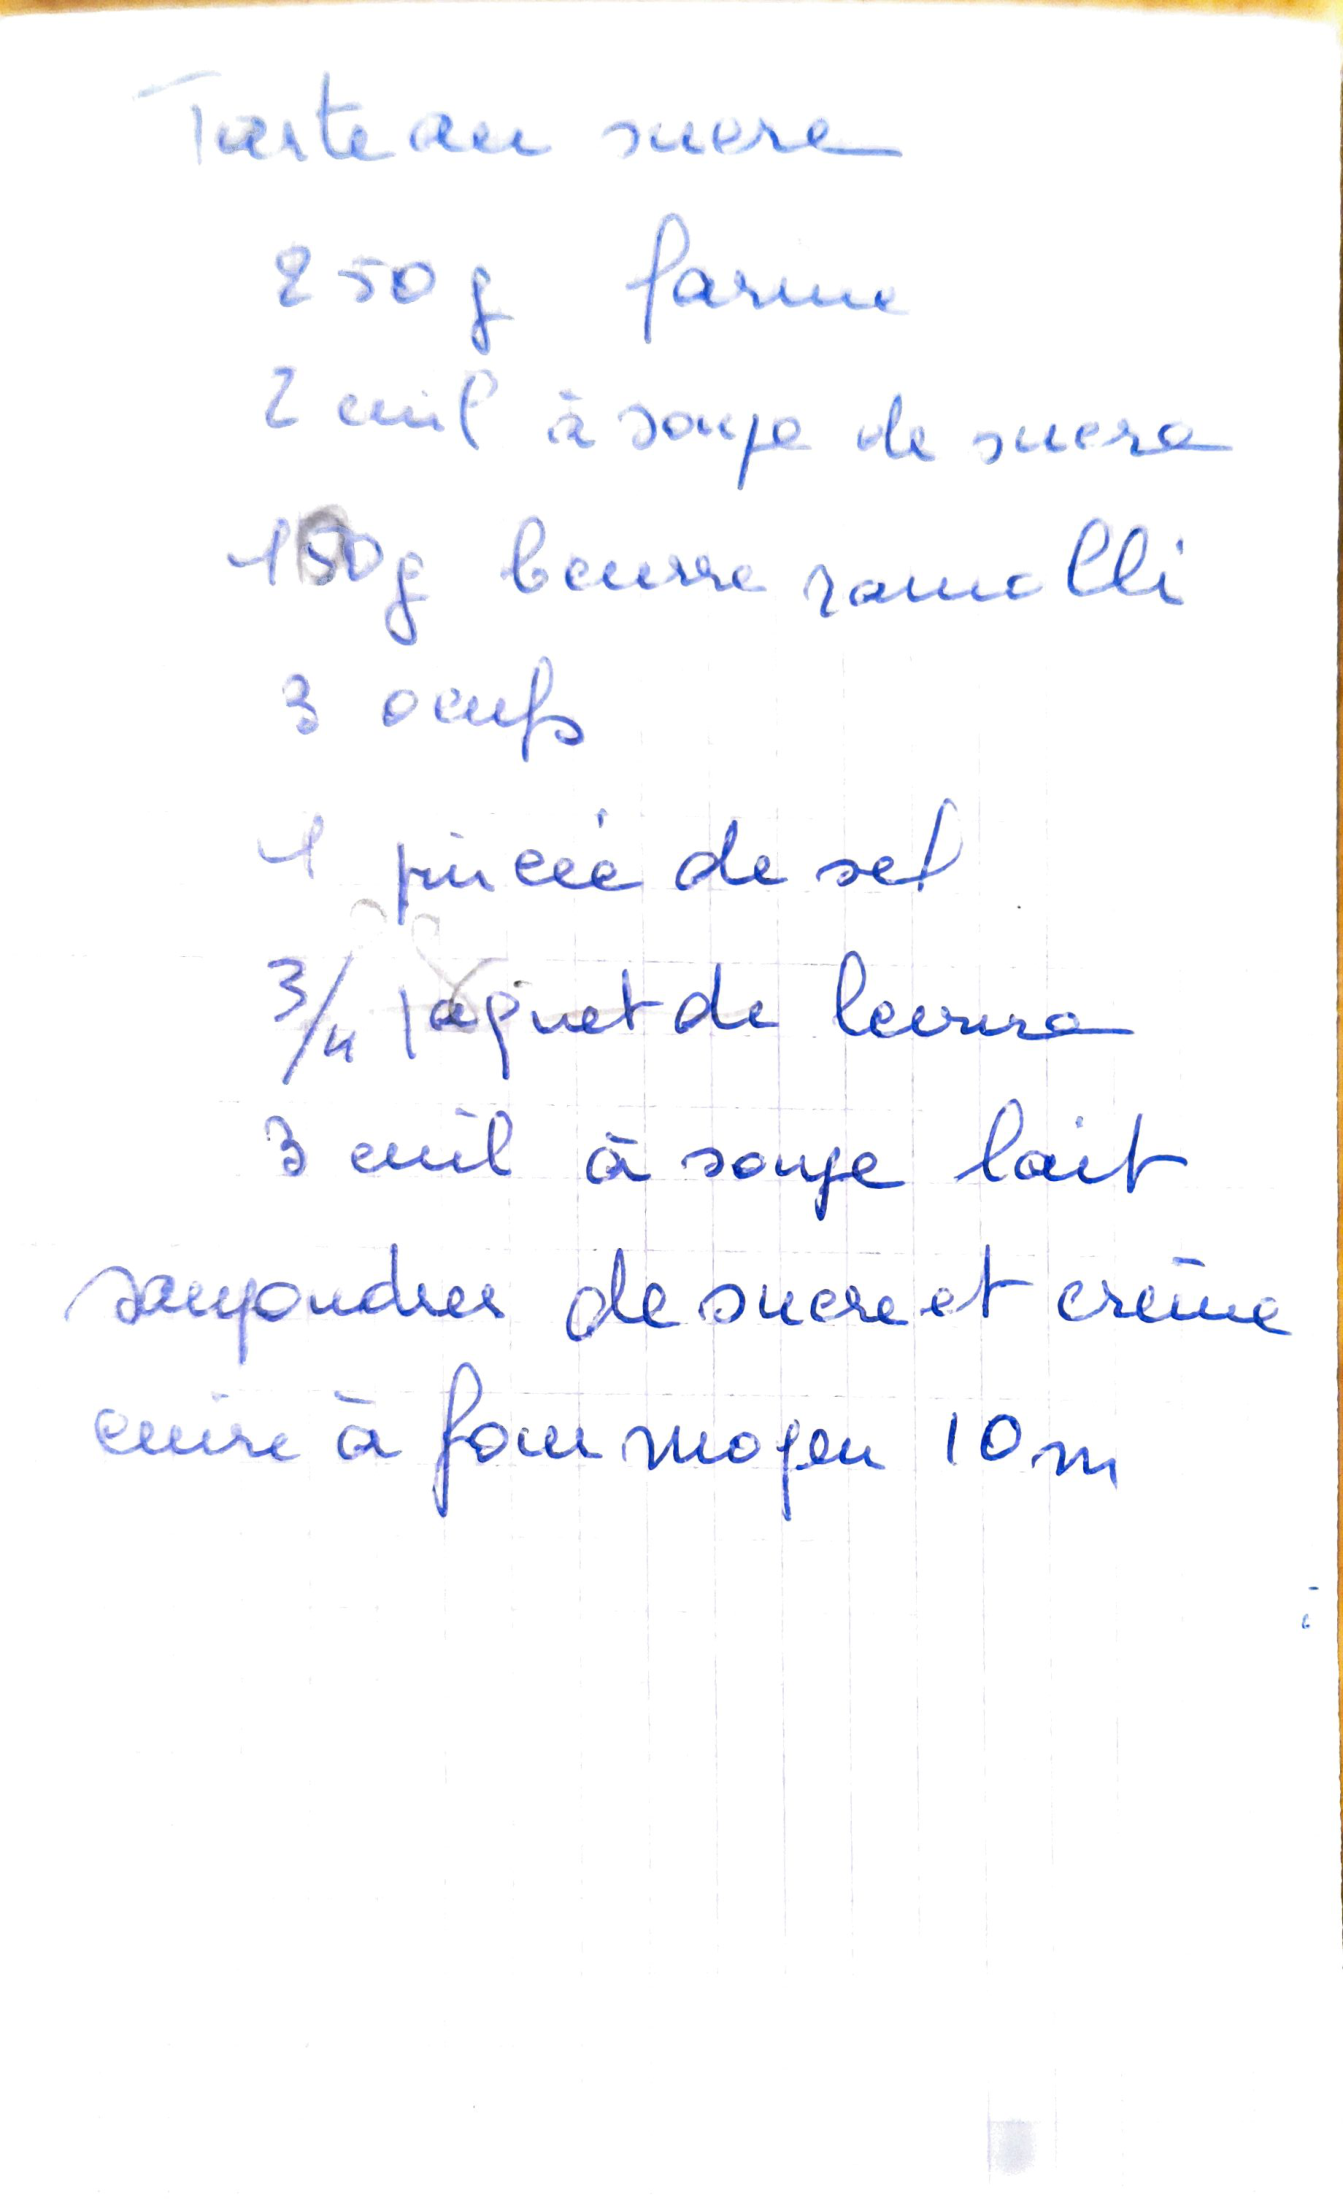 Tarte au sucre
250g farine
2 cuil à soupe de sucre
150g beurre ramolli
3 oeufs
1 pincée de sel
3/4 paquet de levure
3 cuil à soupe lait
saupoudrer de sucre et crème
cuire à four moyen 10m